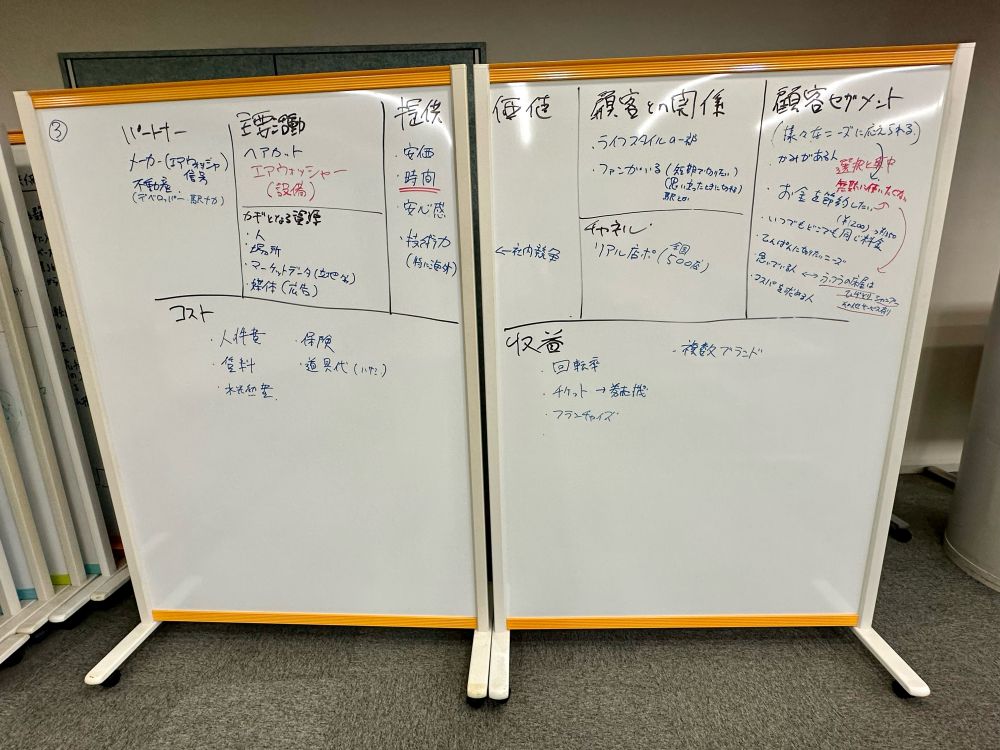 ③
パートナー
メーカー(エアウォッシャー
信号
不動産
(デベロッパー 駅ナカ)
主要活動
ヘアカット
エアウォッシャー
(設備)
カギとなる資源
・人
・場所
・マーケットデータ(立地など)
・媒体(広告)
提供
・安価
・時間
・安心感
・技術力
(特に海外)
コスト
・人件費
・賃料
・水光熱費
・保険
・道具代(ハサミ)
価値
←社内競争
顧客との関係
・ライフスタイルの一部
・ファンがいる(短時間で
(思い立ったときに切れる)
駅とか
チャネル
リアル店ポ(全国
500店)
顧客セグメント
(様々なニーズに応えられる)
・かみがある人
選択と集中
気軽に使い
・お金を節約したい
(¥1200)
・いつでもどこでも同じ料金
・てんぱんになりたいニーズ
・思っている人 ↔ ふつうの床屋は
ヒゲそり シャンプー
その他サービス有り
・コスパを求める人
収益
・回転率
・チケット→券売機
・フランチャイズ
・複数ブランド